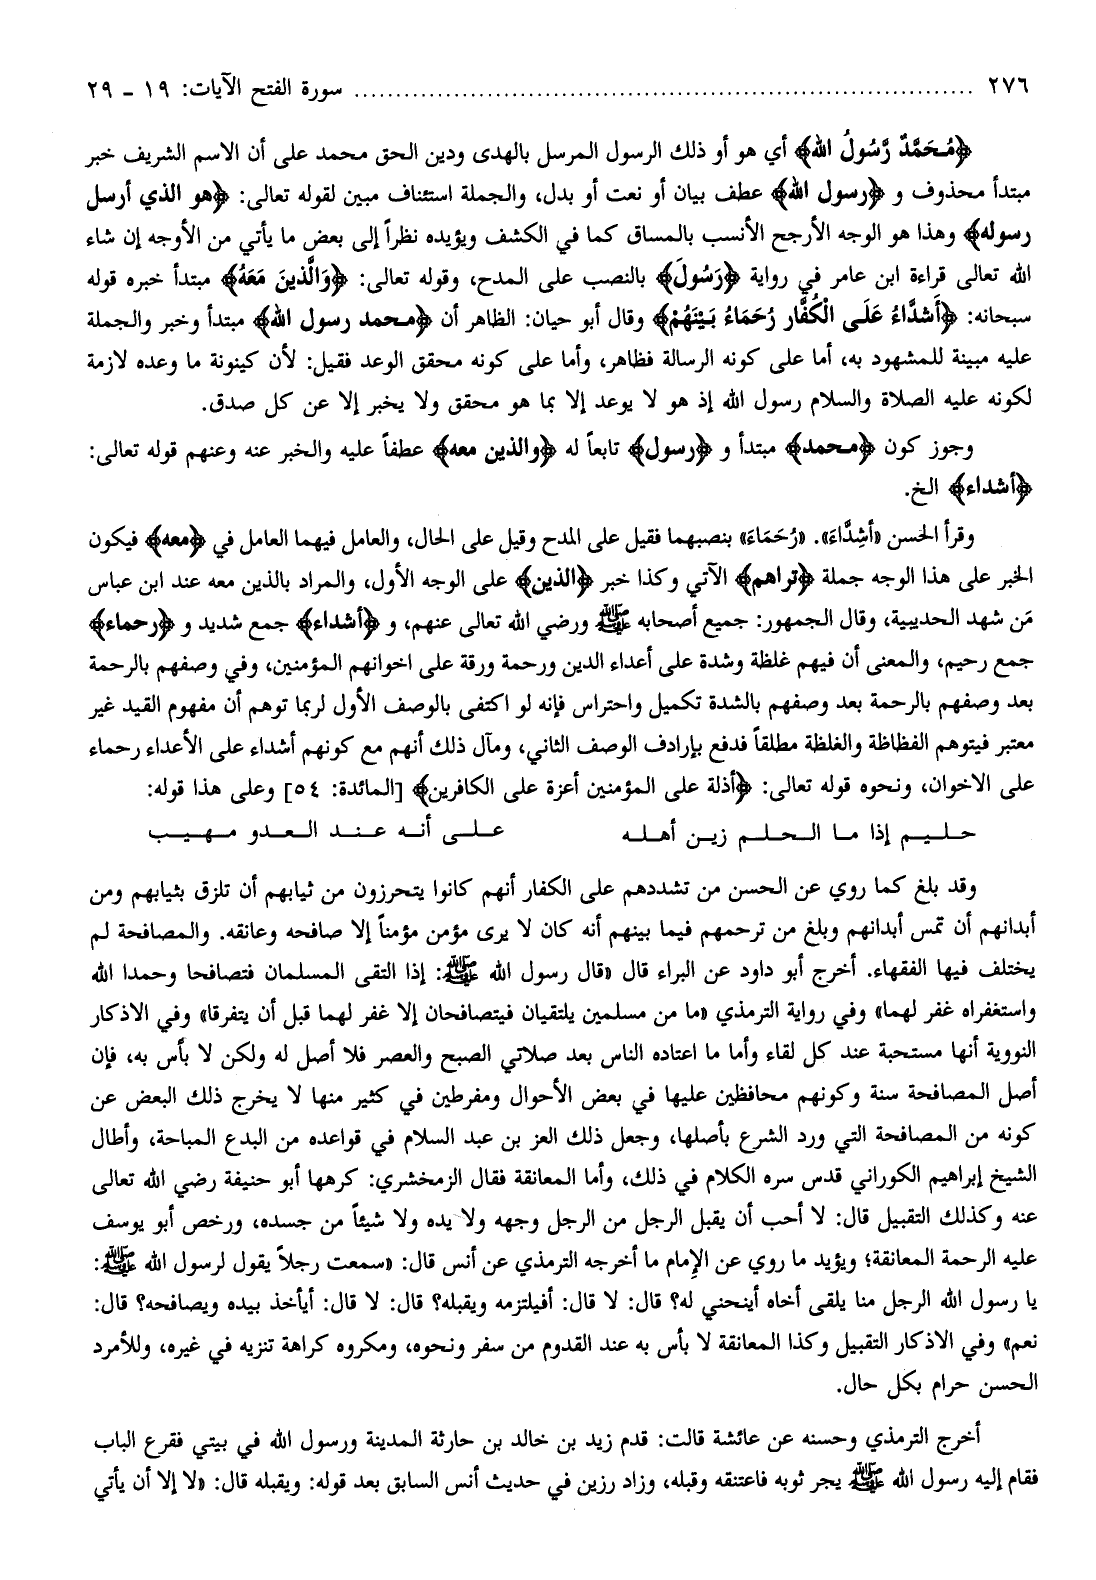 ٢٧٦ ........................................ سورة الفتح الآيات: ١٩ - ٢٩
﴿مُحَمَّدٌ رَّسُولُ الله﴾ أي هو أو ذلك الرسول المرسل بالهدى ودين الحق محمد على أن الاسم الشريف خبر
مبتدأ محذوف و ﴿رسول الله﴾ عطف بيان أو نعت أو بدل، والجملة استئناف مبين لقوله تعالى: ﴿هو الذي أرسل
رسوله﴾ وهذا هو الوجه الأرجح الأنسب بالمساق كما في الكشف ويؤيده نظراً إلى بعض ما يأتي من الأوجه إن شاء
الله تعالى قراءة ابن عامر في رواية ﴿رَسُولَ﴾ بالنصب على المدح، وقوله تعالى: ﴿وَالَّذينَ مَعَهُ﴾ مبتدأ خبره قوله
سبحانه: ﴿أَشدَّاءُ عَلَى الْكُفَّار رُحَمَاءُ بَيْنَهُمْ﴾ وقال أبو حيان: الظاهر أن ﴿محمد رسول الله﴾ مبتدأ وخبر والجملة
عليه مبينة للمشهود به، أما على كونه الرسالة فظاهر، وأما على كونه محقق الوعد فقيل: لأن كينونة ما وعده لازمة
لكونه عليه الصلاة والسلام رسول الله إذ هو لا يوعد إلا بما هو محقق ولا يخبر إلا عن كل صدق.
وجوز كون ﴿محمد﴾ مبتدأ و ﴿رسول﴾ تابعاً له ﴿والذين معه﴾ عطفاً عليه والخبر عنه وعنهم قوله تعالى:
﴿أشداء﴾ الخ.
وقرأ الحسن «أَشِدَّاءَ». «رُحَمَاءَ» بنصبهما فقيل على المدح وقيل على الحال، والعامل فيهما العامل في ﴿معه﴾ فيكون
الخبر على هذا الوجه جملة ﴿تراهم﴾ الآتي وكذا خبر ﴿الذين﴾ على الوجه الأول، والمراد بالذين معه عند ابن عباس
مَن شهد الحديبية، وقال الجمهور: جميع أصحابه ﷺ ورضي الله تعالى عنهم، و ﴿أشداء﴾ جمع شديد و ﴿رحماء﴾
جمع رحيم، والمعنى أن فيهم غلظة وشدة على أعداء الدين ورحمة ورقة على اخوانهم المؤمنين، وفي وصفهم بالرحمة
بعد وصفهم بالرحمة بعد وصفهم بالشدة تكميل واحتراس فإنه لو اكتفى بالوصف الأول لربما توهم أن مفهوم القيد غير
معتبر فيتوهم الفظاظة والغلظة مطلقاً فدفع بإرادف الوصف الثاني، ومآل ذلك أنهم مع كونهم أشداء على الأعداء رحماء
على الاخوان، ونحوه قوله تعالى: ﴿أذلة على المؤمنين أعزة على الكافرين﴾ [المائدة: ٥٤] وعلى هذا قوله:
حليم إذا ما الحلم زين أهله على أنه عند العدو مهيب
وقد بلغ كما روي عن الحسن من تشددهم على الكفار أنهم كانوا يتحرزون من ثيابهم أن تلزق بثيابهم ومن
أبدانهم أن تمس أبدانهم وبلغ من ترحمهم فيما بينهم أنه كان لا يرى مؤمن مؤمناً إلا صافحه وعانقه. والمصافحة لم
يختلف فيها الفقهاء. أخرج أبو داود عن البراء قال «قال رسول الله ﷺ: إذا التقى المسلمان فتصافحا وحمدا الله
واستغفراه غفر لهما» وفي رواية الترمذي «ما من مسلمين يلتقيان فيتصافحان إلا غفر لهما قبل أن يتفرقا» وفي الاذكار
النووية أنها مستحبة عند كل لقاء وأما ما اعتاده الناس بعد صلاتي الصبح والعصر فلا أصل له ولكن لا بأس به، فإن
أصل المصافحة سنة وكونهم محافظين عليها في بعض الأحوال ومفرطين في كثير منها لا يخرج ذلك البعض عن
كونه من المصافحة التي ورد الشرع بأصلها، وجعل ذلك العز بن عبد السلام في قواعده من البدع المباحة، وأطال
الشيخ إبراهيم الكوراني قدس سره الكلام في ذلك، وأما المعانقة فقال الزمخشري: كرهها أبو حنيفة رضي الله تعالى
عنه وكذلك التقبيل قال: لا أحب أن يقبل الرجل من الرجل وجهه ولا يده ولا شيئاً من جسده، ورخص أبو يوسف
عليه الرحمة المعانقة؛ ويؤيد ما روي عن الإمام ما أخرجه الترمذي عن أنس قال: «سمعت رجلاً يقول لرسول الله ﷺ:
يا رسول الله الرجل منا يلقى أخاه أينحني له؟ قال: لا قال: أفيلتزمه ويقبله؟ قال: لا قال: أيأخذ بيده ويصافحه؟ قال:
نعم» وفي الاذكار التقبيل وكذا المعانقة لا بأس به عند القدوم من سفر ونحوه، ومكروه كراهة تنزيه في غيره، وللأمرد
الحسن حرام بكل حال.
أخرج الترمذي وحسنه عن عائشة قالت: قدم زيد بن خالد بن حارثة المدينة ورسول الله في بيتي فقرع الباب
فقام إليه رسول الله ﷺ يجر ثوبه فاعتنقه وقبله، وزاد رزين في حديث أنس السابق بعد قوله: ويقبله قال: «لا إلا أن يأتي